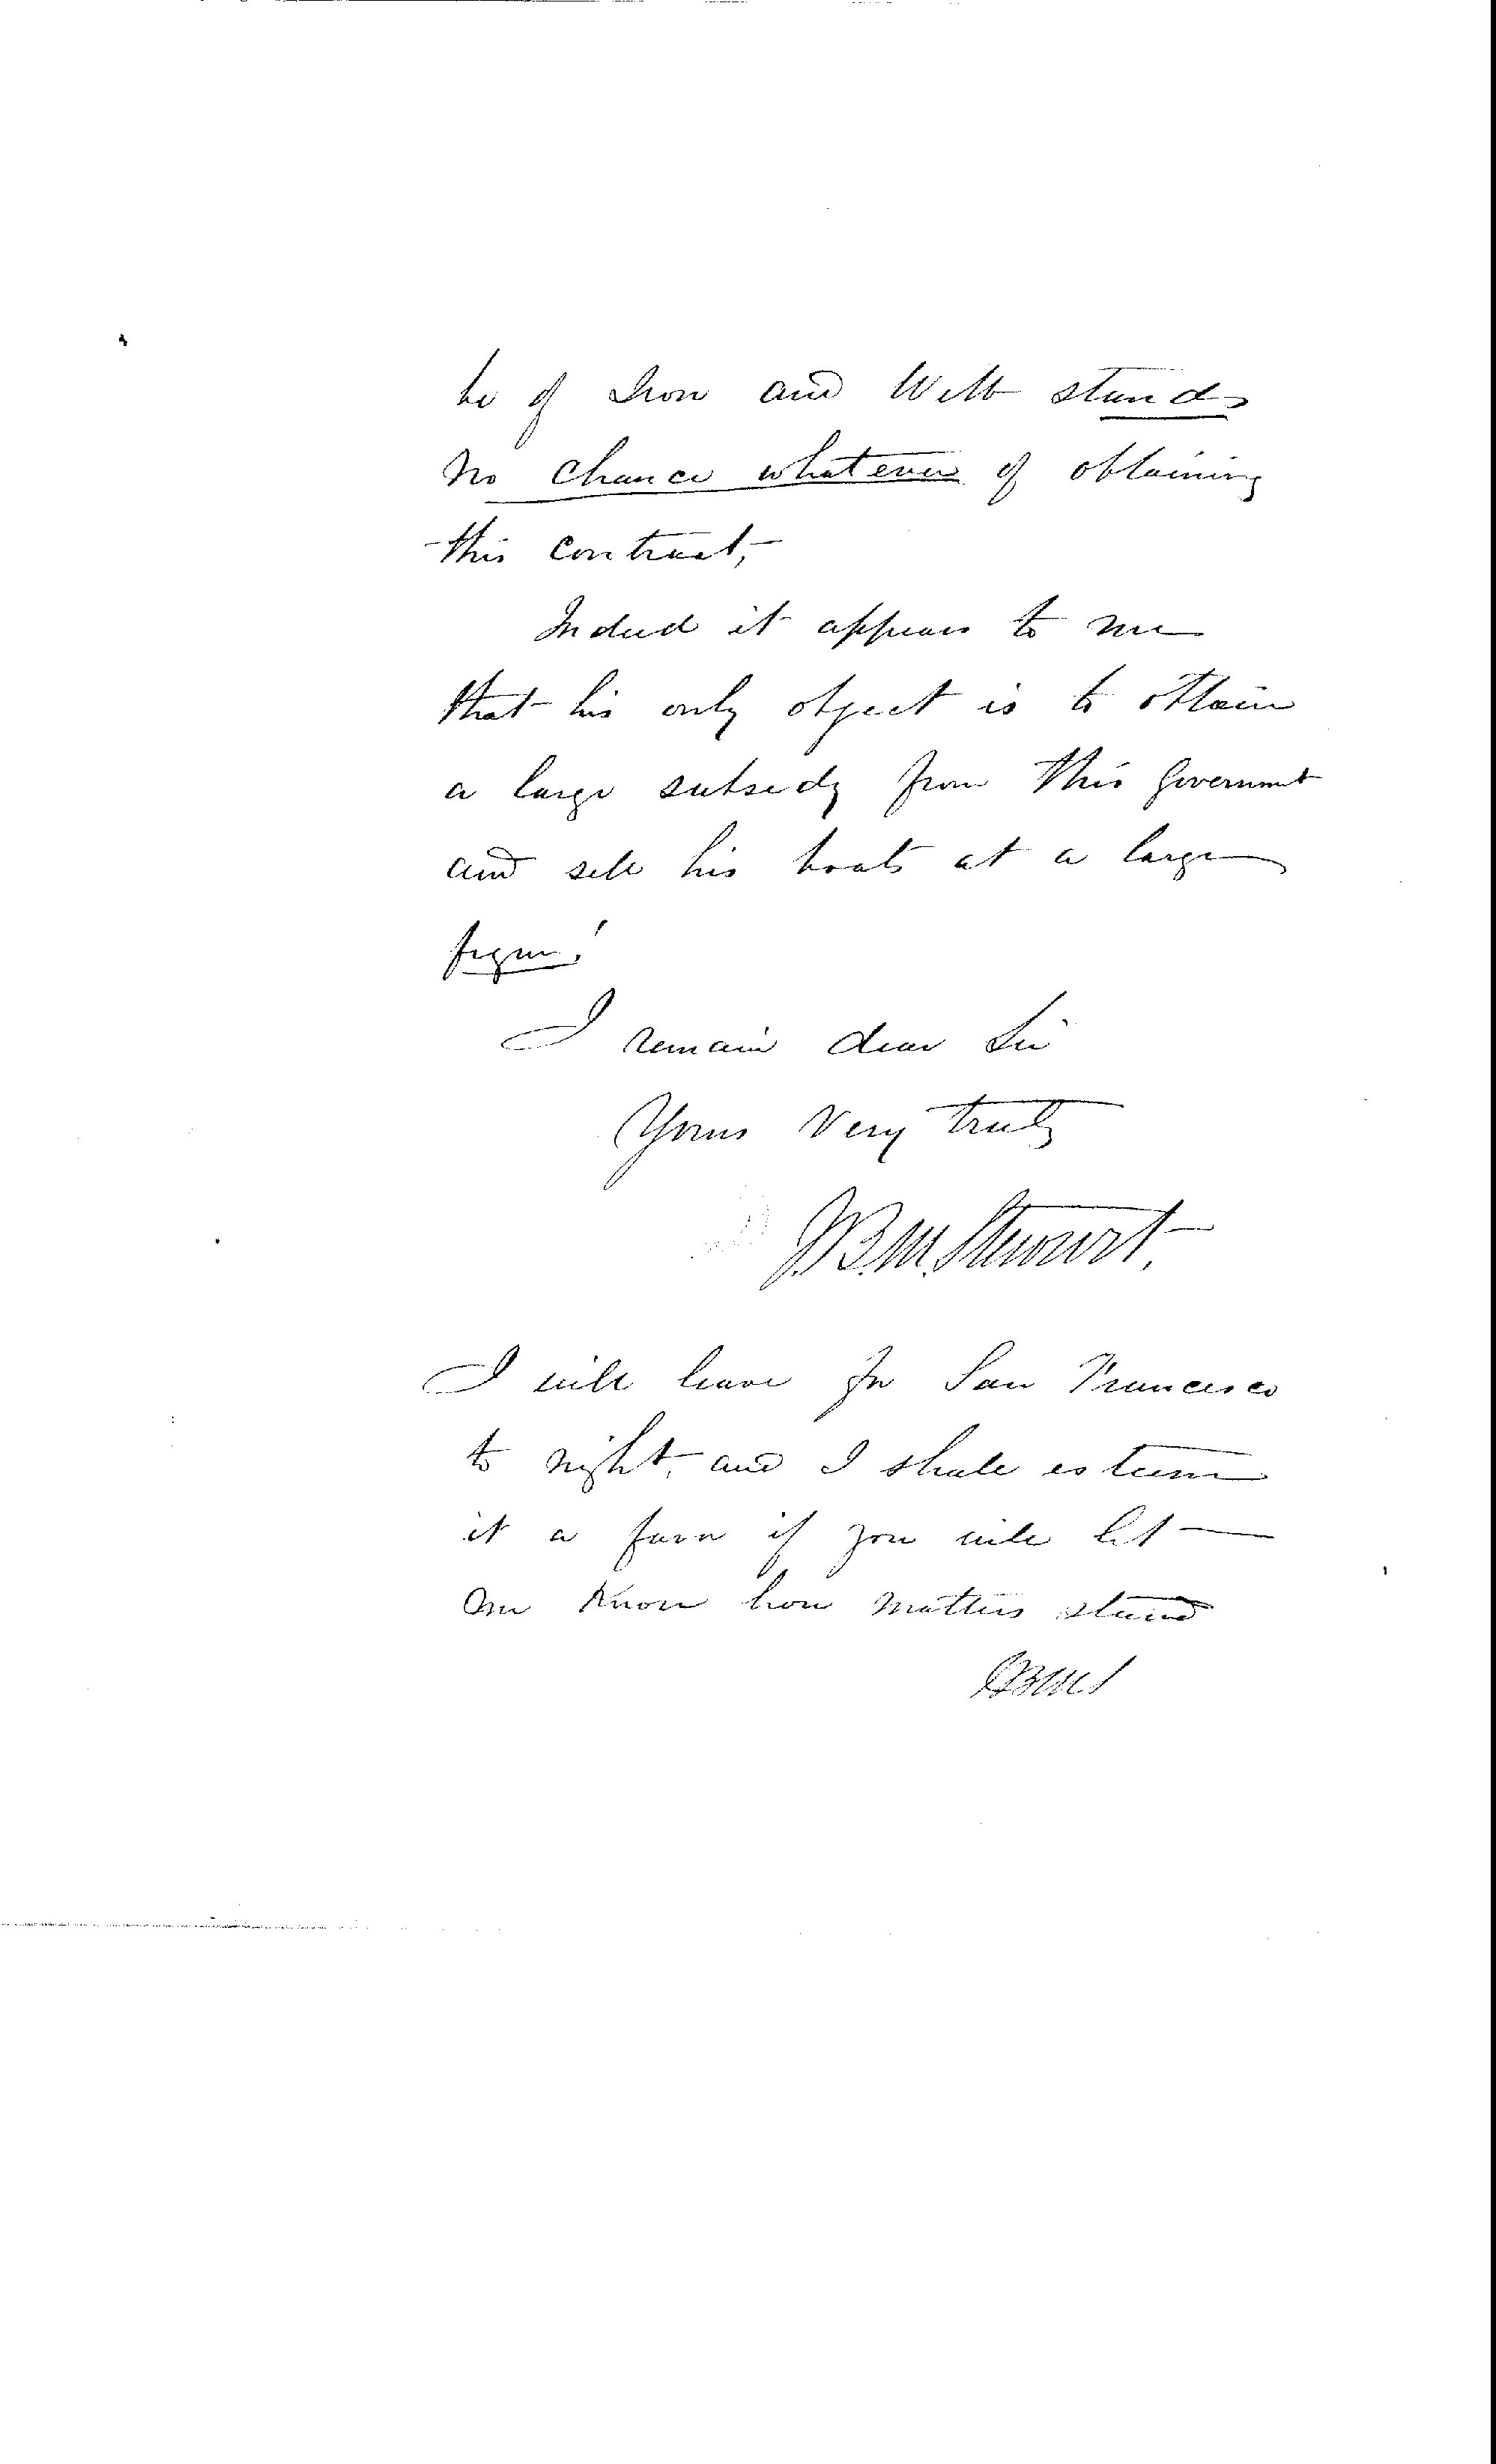 be of Iron and Webb stands
no chance whatever of obtaining
this contract,
Indeed it appears to me
that his only object is to obtain
a large subsidy from this Goverment
and sell his boats at a large
figure!
I remain dear Sir
Yours very truly
J.B.M. Stewart.
I will leave for San Francisco
to night, and I shall esteem
it a favor if you will let
me know how matters stand
JBMS